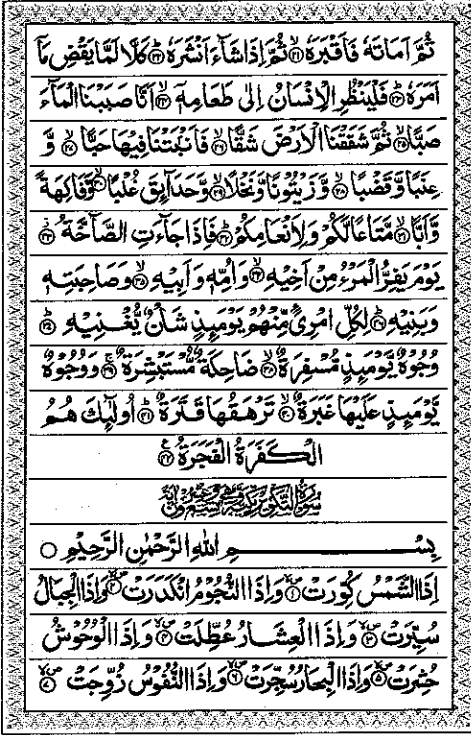 ثُمَّ اَمَاتَهٗ فَاَقْبَرَهٗ ۙ﴿۲۱﴾ ثُمَّ اِذَا شَآءَ اَنْشَرَهٗ ؕ﴿۲۲﴾ كَلَّا لَمَّا يَقْضِ مَاۤ
اَمَرَهٗ ؕ﴿۲۳﴾ فَلْيَنْظُرِ الْاِنْسَانُ اِلٰى طَعَامِهٖۤ ۙ﴿۲۴﴾ اَنَّا صَبَبْنَا الْمَآءَ
صَبًّا ۙ﴿۲۵﴾ ثُمَّ شَقَقْنَا الْاَرْضَ شَقًّا ۙ﴿۲۶﴾ فَاَنْۢبَتْنَا فِيْهَا حَبًّا ۙ﴿۲۷﴾ وَّ
عِنَبًا وَّقَضْبًا ۙ﴿۲۸﴾ وَّزَيْتُوْنًا وَّنَخْلًا ۙ﴿۲۹﴾ وَّحَدَآئِقَ غُلْبًا ۙ﴿۳۰﴾ وَّفَاكِهَةً
وَّاَبًّا ۙ﴿۳۱﴾ مَّتَاعًا لَّكُمْ وَلِاَنْعَامِكُمْ ؕ﴿۳۲﴾ فَاِذَا جَآءَتِ الصَّآخَّةُ ۫﴿۳۳﴾
يَوْمَ يَفِرُّ الْمَرْءُ مِنْ اَخِيْهِ ۙ﴿۳۴﴾ وَاُمِّهٖ وَاَبِيْهِ ۙ﴿۳۵﴾ وَصَاحِبَتِهٖ
وَبَنِيْهِ ؕ﴿۳۶﴾ لِكُلِّ امْرِئٍ مِّنْهُمْ يَوْمَئِذٍ شَاْنٌ يُّغْنِيْهِ ؕ﴿۳۷﴾
وُجُوْهٌ يَّوْمَئِذٍ مُّسْفِرَةٌ ۙ﴿۳۸﴾ ضَاحِكَةٌ مُّسْتَبْشِرَةٌ ۚ﴿۳۹﴾ وَوُجُوْهٌ
يَّوْمَئِذٍ عَلَيْهَا غَبَرَةٌ ۙ﴿۴۰﴾ تَرْهَقُهَا قَتَرَةٌ ؕ﴿۴۱﴾ اُولٰٓئِكَ هُمُ
الْكَفَرَةُ الْفَجَرَةُ ﴿۴۲﴾
سُوْرَةُ التَّكْوِيْرِ مَكِّيَّةٌ
بِسْمِ اللّٰهِ الرَّحْمٰنِ الرَّحِيْمِ ○
اِذَا الشَّمْسُ كُوِّرَتْ ۪ۙ﴿۱﴾ وَاِذَا النُّجُوْمُ انْكَدَرَتْ ۪ۙ﴿۲﴾ وَاِذَا الْجِبَالُ
سُيِّرَتْ ۪ۙ﴿۳﴾ وَاِذَا الْعِشَارُ عُطِّلَتْ ۪ۙ﴿۴﴾ وَاِذَا الْوُحُوْشُ
حُشِرَتْ ۪ۙ﴿۵﴾ وَاِذَا الْبِحَارُ سُجِّرَتْ ۪ۙ﴿۶﴾ وَاِذَا النُّفُوْسُ زُوِّجَتْ ۪ۙ﴿۷﴾